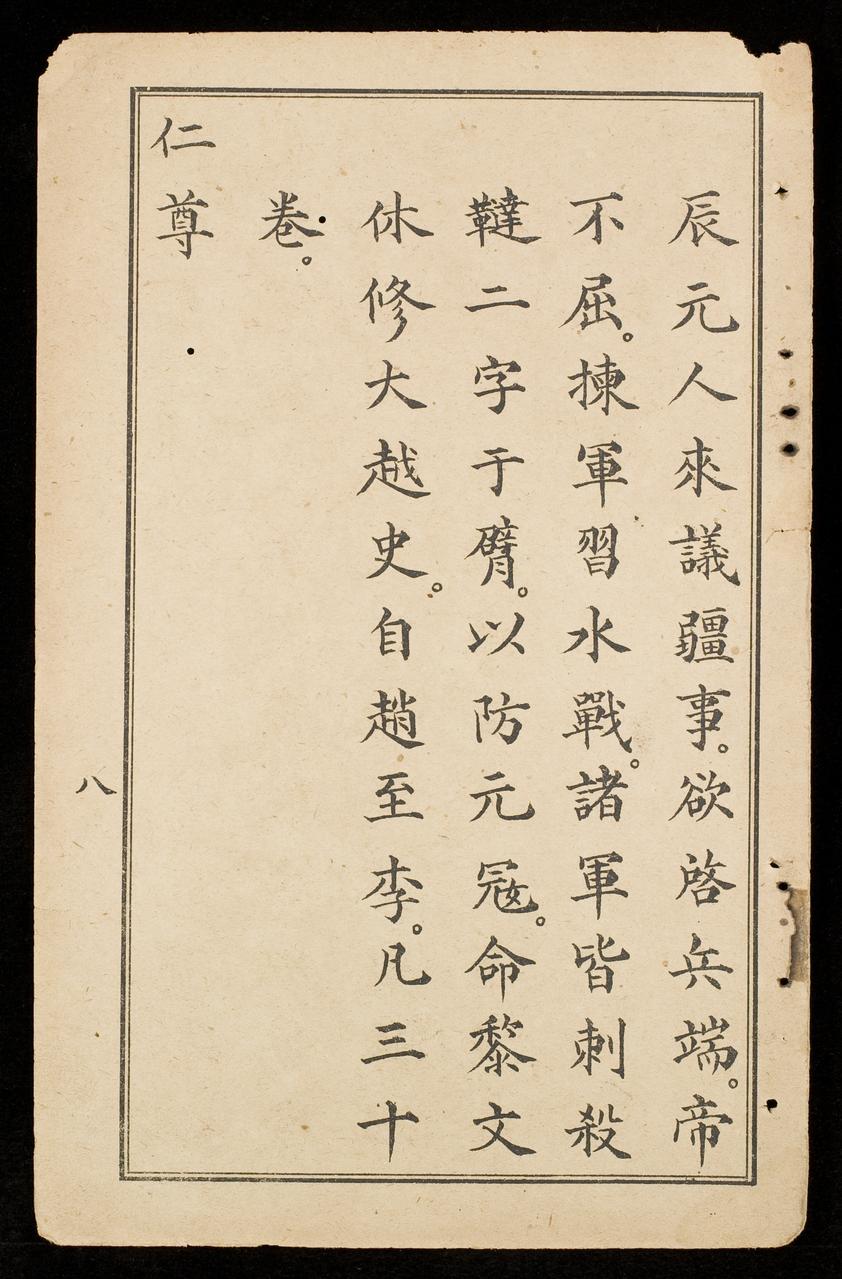 辰元人來議疆事。欲啓兵端。帝
不屈。揀軍習水戰。諸軍皆刺殺
韃二字于臂。以防元冦。命黎文
休修大越史。自趙至李。凡三十
卷。
仁尊
八